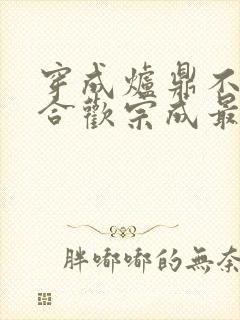 穿成爐鼎不
合歡宗成最
胖嘟嘟的無奈